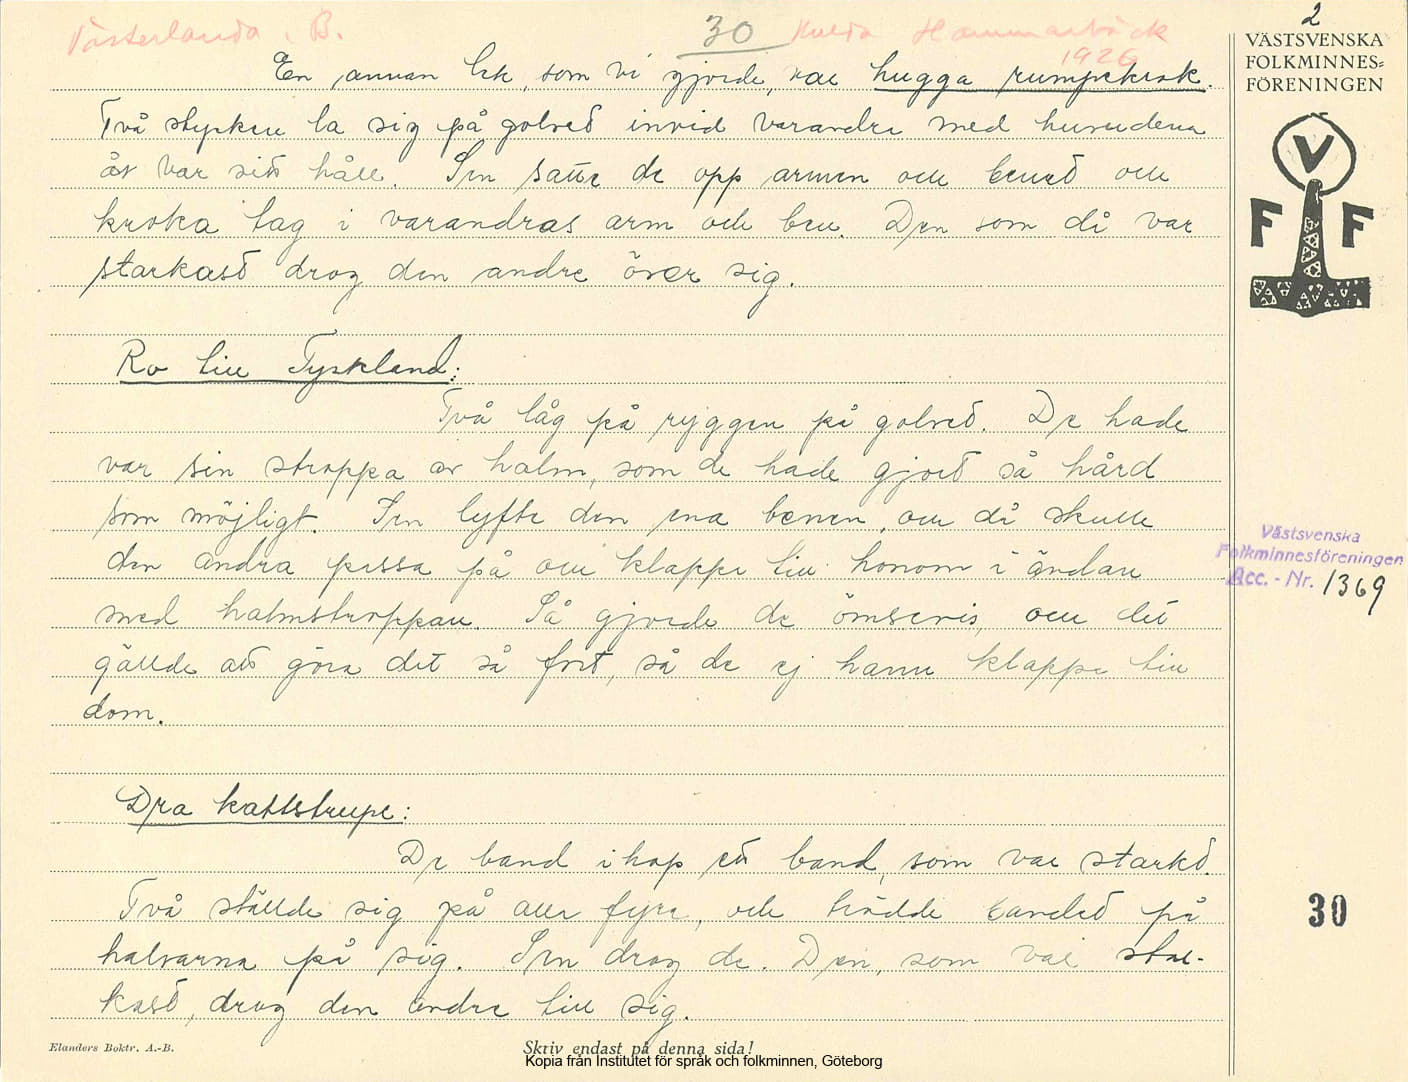 Västerlanda . B.
30
Hulda Hammarbäck
1926
2
VÄSTSVENSKA
FOLKMINNES=
FÖRENINGEN
V
F F
En annan lek, som vi gjorde, var hugga rumpekrok.
Två stycken la sig på golved invid varandre med huvudena
åt var sitt håll. Sen satte de opp armen och bened och
kroka tag i varandras arm och ben. Den som då var
starkasd drog den andre över sig.
Ro till Tyskland:
Två låg på ryggen på golved. De hade
var sin stroppa av halm, som de hade gjord så hård
som möjligt. Sen lyfte den ena benen, och då skulle
den andra passa på och klappe till honom i ändan
med halmstroppan. Så gjorde de ömsevis, och det
gällde att göra det så fort, så de ej hann klappe till
dom.
Dra kattstrupe:
De band ihop ett band, som var starkd.
Två ställde sig på aller fyre, och trädde banded på
halvarna på sig. Sen drog de. Den, som var star-
kasd, drog den andre till sig.
Västsvenska
Folkminnesföreningen
Acc. - Nr. 1369
30
Elanders Boktr. A.-B.
Skriv endast på denna sida!
Kopia från Institutet för språk och folkminnen, Göteborg